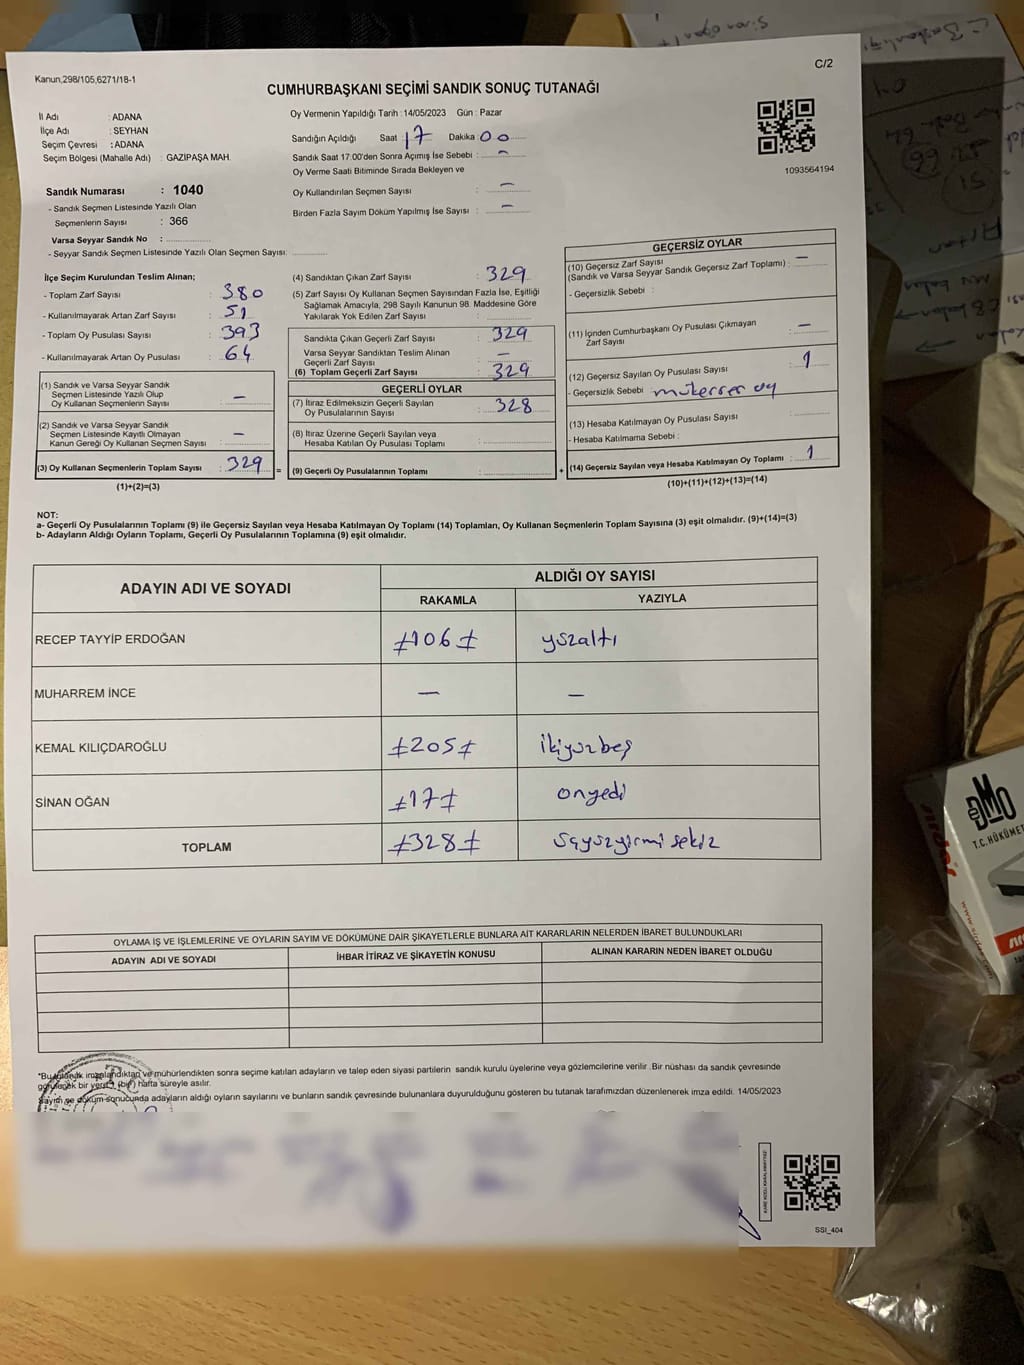 Kanun,298/105,6271/18-1
C/2
CUMHURBAŞKANI SEÇİMİ SANDIK SONUÇ TUTANAĞI
İl Adı : ADANA
İlçe Adı : SEYHAN
Seçim Çevresi : ADANA
Seçim Bölgesi (Mahalle Adı) : GAZİPAŞA MAH.
Oy Vermenin Yapıldığı Tarih : 14/05/2023 Gün : Pazar
Sandığın Açıldığı Saat 17 Dakika 00
Sandık Saat 17.00'den Sonra Açımış İse Sebebi : –
Oy Verme Saati Bitiminde Sırada Bekleyen ve
Oy Kullandırılan Seçmen Sayısı : –
Birden Fazla Sayım Döküm Yapılmış İse Sayısı : –
1093564194
Sandık Numarası : 1040
- Sandık Seçmen Listesinde Yazılı Olan
Seçmenlerin Sayısı : 366
Varsa Seyyar Sandık No :
- Seyyar Sandık Seçmen Listesinde Yazılı Olan Seçmen Sayısı:
İlçe Seçim Kurulundan Teslim Alınan;
- Toplam Zarf Sayısı : 380
- Kullanılmayarak Artan Zarf Sayısı : 51
- Toplam Oy Pusulası Sayısı : 393
- Kullanılmayarak Artan Oy Pusulası : 64
(1) Sandık ve Varsa Seyyar Sandık
Seçmen Listesinde Yazılı Olup
Oy Kullanan Seçmenlerin Sayısı : –
(2) Sandık ve Varsa Seyyar Sandık
Seçmen Listesinde Kayıtlı Olmayan
Kanun Gereği Oy Kullanan Seçmen Sayısı : –
(3) Oy Kullanan Seçmenlerin Toplam Sayısı : 329 =
(1)+(2)=(3)
(4) Sandıktan Çıkan Zarf Sayısı : 329
(5) Zarf Sayısı Oy Kullanan Seçmen Sayısından Fazla İse, Eşitliği
Sağlamak Amacıyla, 298 Sayılı Kanunun 98. Maddesine Göre
Yakılarak Yok Edilen Zarf Sayısı :
Sandıkta Çıkan Geçerli Zarf Sayısı : 329
Varsa Seyyar Sandıktan Teslim Alınan
Geçerli Zarf Sayısı : –
(6) Toplam Geçerli Zarf Sayısı : 329
GEÇERLİ OYLAR
(7) İtiraz Edilmeksizin Geçerli Sayılan
Oy Pusulalarının Sayısı : 328
(8) İtiraz Üzerine Geçerli Sayılan veya
Hesaba Katılan Oy Pusulaları Toplamı :
(9) Geçerli Oy Pusulalarının Toplamı : +
GEÇERSİZ OYLAR
(10) Geçersiz Zarf Sayısı
(Sandık ve Varsa Seyyar Sandık Geçersiz Zarf Toplamı) : –
- Geçersizlik Sebebi :
(11) İçinden Cumhurbaşkanı Oy Pusulası Çıkmayan
Zarf Sayısı : –
(12) Geçersiz Sayılan Oy Pusulası Sayısı : 1
- Geçersizlik Sebebi mükerrer oy
(13) Hesaba Katılmayan Oy Pusulası Sayısı :
- Hesaba Katılmama Sebebi :
(14) Geçersiz Sayılan veya Hesaba Katılmayan Oy Toplamı : 1
(10)+(11)+(12)+(13)=(14)
NOT:
a- Geçerli Oy Pusulalarının Toplamı (9) ile Geçersiz Sayılan veya Hesaba Katılmayan Oy Toplamı (14) Toplamları, Oy Kullanan Seçmenlerin Toplam Sayısına (3) eşit olmalıdır. (9)+(14)=(3)
b- Adayların Aldığı Oyların Toplamı, Geçerli Oy Pusulalarının Toplamına (9) eşit olmalıdır.
ADAYIN ADI VE SOYADI
ALDIĞI OY SAYISI
RAKAMLA YAZIYLA
RECEP TAYYİP ERDOĞAN ≠106≠ yüzaltı
MUHARREM İNCE – –
KEMAL KILIÇDAROĞLU ≠205≠ ikiyüzbeş
SİNAN OĞAN ≠17≠ onyedi
TOPLAM ≠328≠ üçyüzyirmi sekiz
OYLAMA İŞ VE İŞLEMLERİNE VE OYLARIN SAYIM VE DÖKÜMÜNE DAİR ŞİKAYETLERLE BUNLARA AİT KARARLARIN NELERDEN İBARET BULUNDUKLARI
ADAYIN ADI VE SOYADI İHBAR İTİRAZ VE ŞİKAYETİN KONUSU ALINAN KARARIN NEDEN İBARET OLDUĞU
*Bu tutanak imzalandıktan ve mühürlendikten sonra seçime katılan adayların ve talep eden siyasi partilerin sandık kurulu üyelerine veya gözlemcilerine verilir .Bir nüshası da sandık çevresinde
görülecek bir yere 1 (bir) hafta süreyle asılır.
Sayım ve döküm sonucunda adayların aldığı oyların sayılarını ve bunların sandık çevresinde bulunanlara duyurulduğunu gösteren bu tutanak tarafımızdan düzenlenerek imza edildi. 14/05/2023
SSI_404
DMO
T.C. HÜKÜMET